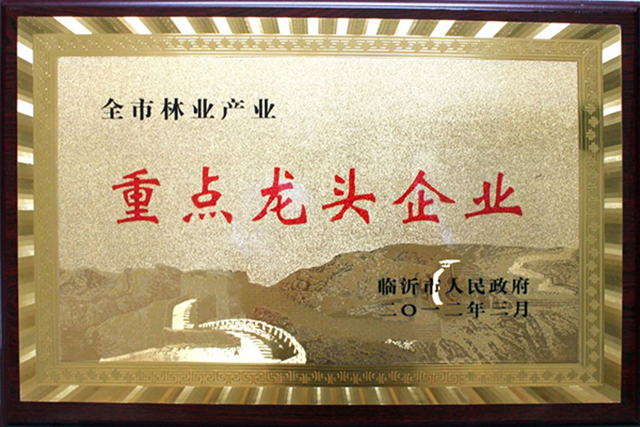 全市林业产业
重点龙头企业
临沂市人民政府
二〇一二年三月